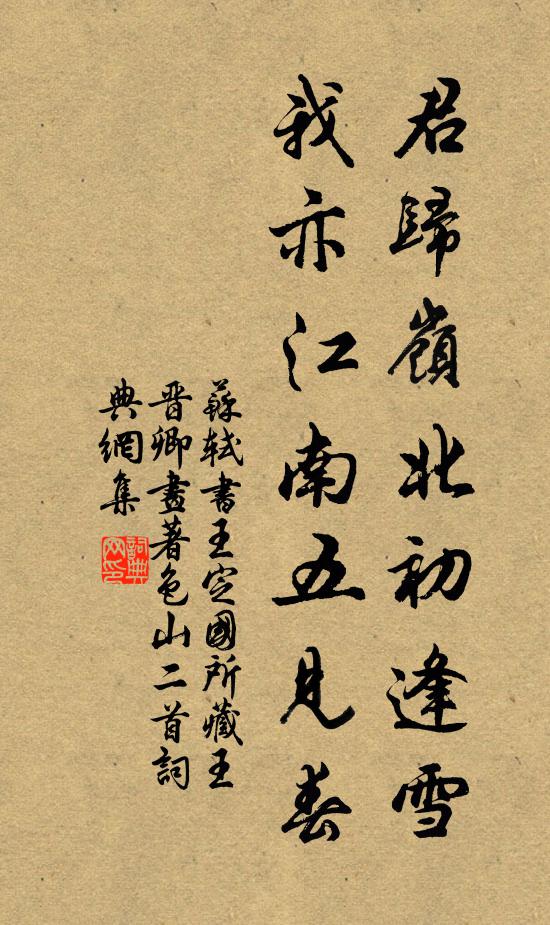 君歸嶺北初逢雪
我亦江南五見春
蘇軾書王定國所藏王
晋卿畫著色山二首詞
典網集
詞典
网印